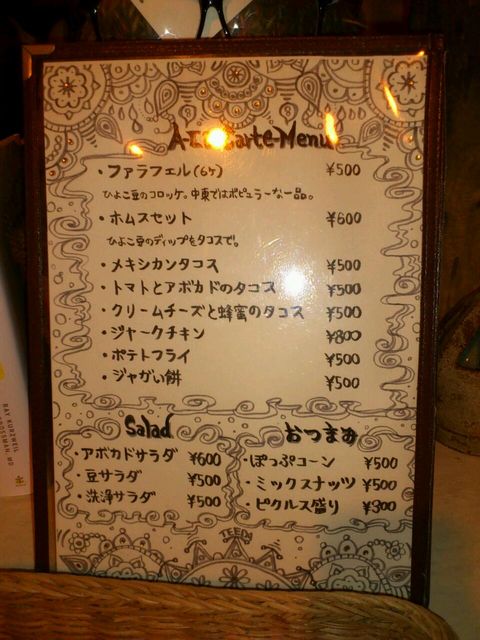 A-La Carte-Menu
・ファラフェル(6ケ) ¥500
ひよこ豆のコロッケ。中東ではポピュラーな一品。
・ホムスセット ¥600
ひよこ豆のディップをタコスで。
・メキシカンタコス ¥500
・トマトとアボカドのタコス ¥500
・クリームチーズと蜂蜜のタコス ¥500
・ジャークチキン ¥800
・ポテトフライ ¥500
・ジャがい餅 ¥500
Salad
・アボカドサラダ ¥600
・豆サラダ ¥500
・洗浄サラダ ¥500
おつまみ
・ぽっぷコーン ¥500
・ミックスナッツ ¥500
・ピクルス盛り ¥300
RAY KURZWEIL
GROSSMAN, MD